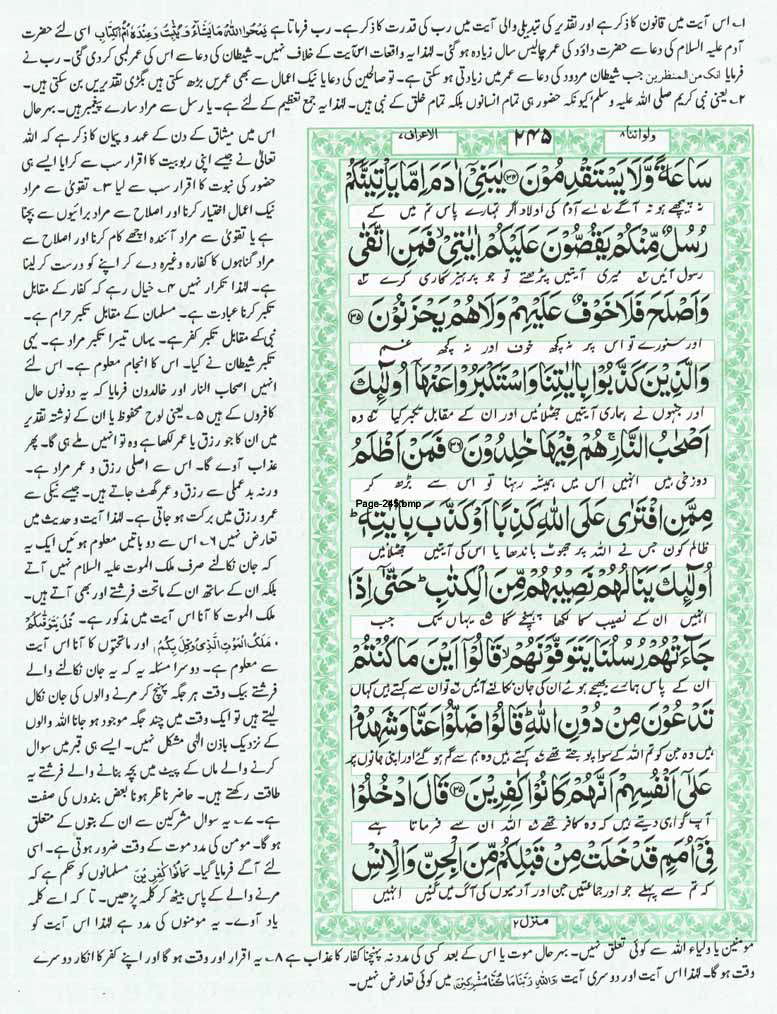 ۱؎ اس آیت میں قانون کا ذکر ہے اور تقدیر کی تبدیلی والی آیت میں رب کی قدرت کا ذکر ہے۔ رب فرماتا ہے یَمْحُوا اللّٰہُ مَا یَشَآءُ وَیُثْبِتُ وَعِنْدَہٗٓ اُمُّ الْکِتٰبِ اسی لئے حضرت
آدم علیہ السلام کی دعا سے حضرت داؤد کی عمر چالیس سال زیادہ ہو گئی۔ لہٰذا یہ واقعات اس آیت کے خلاف نہیں۔ شیطان کی دعا سے اس کی عمر لمبی کر دی گئی۔ رب نے
فرمایا انک من المنظرین جب شیطان مردود کی دعا سے عمر میں زیادتی ہو سکتی ہے۔ تو صالحین کی دعا یا نیک اعمال سے بھی عمریں بڑھ سکتی ہیں بگڑی تقدیریں بن سکتی ہیں۔
۲؎ یعنی نبی کریم صلی اللہ علیہ وسلم کیونکہ حضور ہی تمام انسانوں بلکہ تمام خلق کے نبی ہیں۔ لہٰذا یہ جمع تعظیم کے لئے ہے۔ یا رسل سے مراد سارے پیغمبر ہیں۔ بہرحال
اس میں میثاق کے دن کے عہد و پیمان کا ذکر ہے کہ اللہ
تعالیٰ نے جیسے اپنی ربوبیت کا اقرار سب سے کرایا ایسے ہی
حضور کی نبوت کا اقرار سب سے لیا ۳؎ تقویٰ سے مراد
نیک اعمال اختیار کرنا اور اصلاح سے مراد برائیوں سے بچنا
ہے یا تقویٰ سے مراد آئندہ اچھے کام کرنا اور اصلاح سے
مراد گناہوں کا کفارہ وغیرہ دے کر اپنے کو درست کر لینا
ہے۔ لہٰذا تکرار نہیں ۴؎ خیال رہے کہ کفار کے مقابل
تکبر کرنا عبادت ہے۔ مسلمان کے مقابل تکبر حرام ہے۔
نبی کے مقابل تکبر کفر ہے۔ یہاں تیسرا تکبر مراد ہے۔ یہی
تکبر شیطان نے کیا۔ اس کا انجام معلوم ہے۔ اس لئے
انہیں اصحاب النار اور خالدون فرمایا کہ یہ دونوں حال
کافروں کے ہیں ۵؎ یعنی لوح محفوظ یا ان کے نوشتہ تقدیر
میں ان کا جو رزق یا عمر لکھا ہے وہ تو انہیں ملے ہی گا۔ پھر
عذاب آوے گا۔ اس سے اصلی رزق و عمر مراد ہے۔
ورنہ بد عملی سے رزق و عمر گھٹ جاتے ہیں۔ جیسے نیکی سے
عمر و رزق میں برکت ہو جاتی ہے۔ لہٰذا آیت و حدیث میں
تعارض نہیں ۶؎ اس سے دو باتیں معلوم ہوئیں ایک یہ
کہ جان نکالنے صرف ملک الموت علیہ السلام نہیں آتے
بلکہ ان کے ساتھ ان کے ماتحت فرشتے اور بھی آتے ہیں۔
ملک الموت کا آنا اس آیت میں مذکور ہے۔ قُلْ یَتَوَفّٰکُمْ
مَّلَکُ الْمَوْتِ الَّذِیْ وُکِّلَ بِکُمْ اور ماتحتوں کا آنا اس آیت
سے معلوم ہے۔ دوسرا مسئلہ یہ کہ یہ جان نکالنے والے
فرشتے بیک وقت ہر جگہ پہنچ کر مرنے والوں کی جان نکال
لیتے ہیں تو ایک وقت میں چند جگہ موجود ہو جانا اللہ والوں
کے نزدیک باذن الٰہی مشکل نہیں۔ ایسے ہی قبر میں سوال
کرنے والے ماں کے پیٹ میں بچہ بنانے والے فرشتے یہ
طاقت رکھتے ہیں۔ حاضر ناظر ہونا بعض بندوں کی صفت
ہے۔ ۷؎ یہ سوال مشرکین سے ان کے بتوں کے متعلق
ہو گا۔ مومن کی مدد موت کے وقت ضرور ہوتی ہے۔ اسی
لئے آگے فرمایا گیا۔ کَانُوْا کٰفِرِیْنَ مسلمانوں کو حکم ہے کہ
مرنے والے کے پاس بیٹھ کر کلمہ پڑھیں۔ تا کہ اسے کلمہ
یاد آوے۔ یہ مومنوں کی مدد ہے لہٰذا اس آیت کو
ولواننا ۸ ۲۴۵ الاعراف ۷
سَاعَةً وَّلَا یَسْتَقْدِمُوْنَ ﴿۳۴﴾ یٰبَنِیْۤ اٰدَمَ اِمَّا یَاْتِیَنَّكُمْ
نہ پیچھے ہو نہ آگے اے آدم کی اولاد اگر تمہارے پاس تم میں کے
رُسُلٌ مِّنْكُمْ یَقُصُّوْنَ عَلَیْكُمْ اٰیٰتِیْ ۙ فَمَنِ اتَّقٰی
رسول آئیں میری آیتیں پڑھتے تو جو پرہیزگاری کرے
وَاَصْلَحَ فَلَا خَوْفٌ عَلَیْهِمْ وَلَا هُمْ یَحْزَنُوْنَ ﴿۳۵﴾
اور سنورے تو اس پر نہ کچھ خوف اور نہ کچھ غم
وَالَّذِیْنَ كَذَّبُوْا بِاٰیٰتِنَا وَاسْتَكْبَرُوْا عَنْهَاۤ اُولٰٓئِكَ
اور جنہوں نے ہماری آیتیں جھٹلائیں اور ان کے مقابل تکبر کیا وہ
اَصْحٰبُ النَّارِ ۚ هُمْ فِیْهَا خٰلِدُوْنَ ﴿۳۶﴾ فَمَنْ اَظْلَمُ
دوزخی ہیں انہیں اس میں ہمیشہ رہنا تو اس سے بڑھ کر
Page-245.bmp
مِمَّنِ افْتَرٰی عَلَی اللّٰهِ كَذِبًا اَوْ كَذَّبَ بِاٰیٰتِهٖ ؕ
ظالم کون جس نے اللہ پر جھوٹ باندھا یا اس کی آیتیں جھٹلائیں
اُولٰٓئِكَ یَنَالُهُمْ نَصِیْبُهُمْ مِّنَ الْكِتٰبِ ؕ حَتّٰۤی اِذَا
انہیں ان کے نصیب کا لکھا پہنچے گا یہاں تک جب
جَآءَتْهُمْ رُسُلُنَا یَتَوَفَّوْنَهُمْ ۙ قَالُوْۤا اَیْنَ مَا كُنْتُمْ
ان کے پاس ہمارے بھیجے ہوئے ان کی جان نکالنے آئیں تو ان سے کہتے ہیں کہاں
تَدْعُوْنَ مِنْ دُوْنِ اللّٰهِ ؕ قَالُوْا ضَلُّوْا عَنَّا وَشَهِدُوْا
ہیں وہ جن کو تم اللہ کے سوا پوجتے تھے کہتے ہیں وہ ہم سے گم ہو گئے اور اپنی جانوں پر
عَلٰۤی اَنْفُسِهِمْ اَنَّهُمْ كَانُوْا كٰفِرِیْنَ ﴿۳۷﴾ قَالَ ادْخُلُوْا
آپ گواہی دیتے ہیں کہ وہ کافر تھے اللہ ان سے فرماتا ہے
فِیْۤ اُمَمٍ قَدْ خَلَتْ مِنْ قَبْلِكُمْ مِّنَ الْجِنِّ وَالْاِنْسِ
کہ تم سے پہلے جو اور جماعتیں جن اور آدمیوں کی آگ میں گئیں انہیں
منزل ۲
مومنین یا اولیاء اللہ سے کوئی تعلق نہیں۔ بہرحال موت یا اس کے بعد کسی کی مدد نہ پہنچنا کفار کا عذاب ہے ۸؎ یہ اقرار اور وقت ہو گا اور اپنے کفر کا انکار دوسرے
وقت ہو گا۔ لہٰذا اس آیت اور دوسری آیت وَاللّٰہِ رَبِّنَا مَا کُنَّا مُشْرِکِیْنَ میں کوئی تعارض نہیں۔